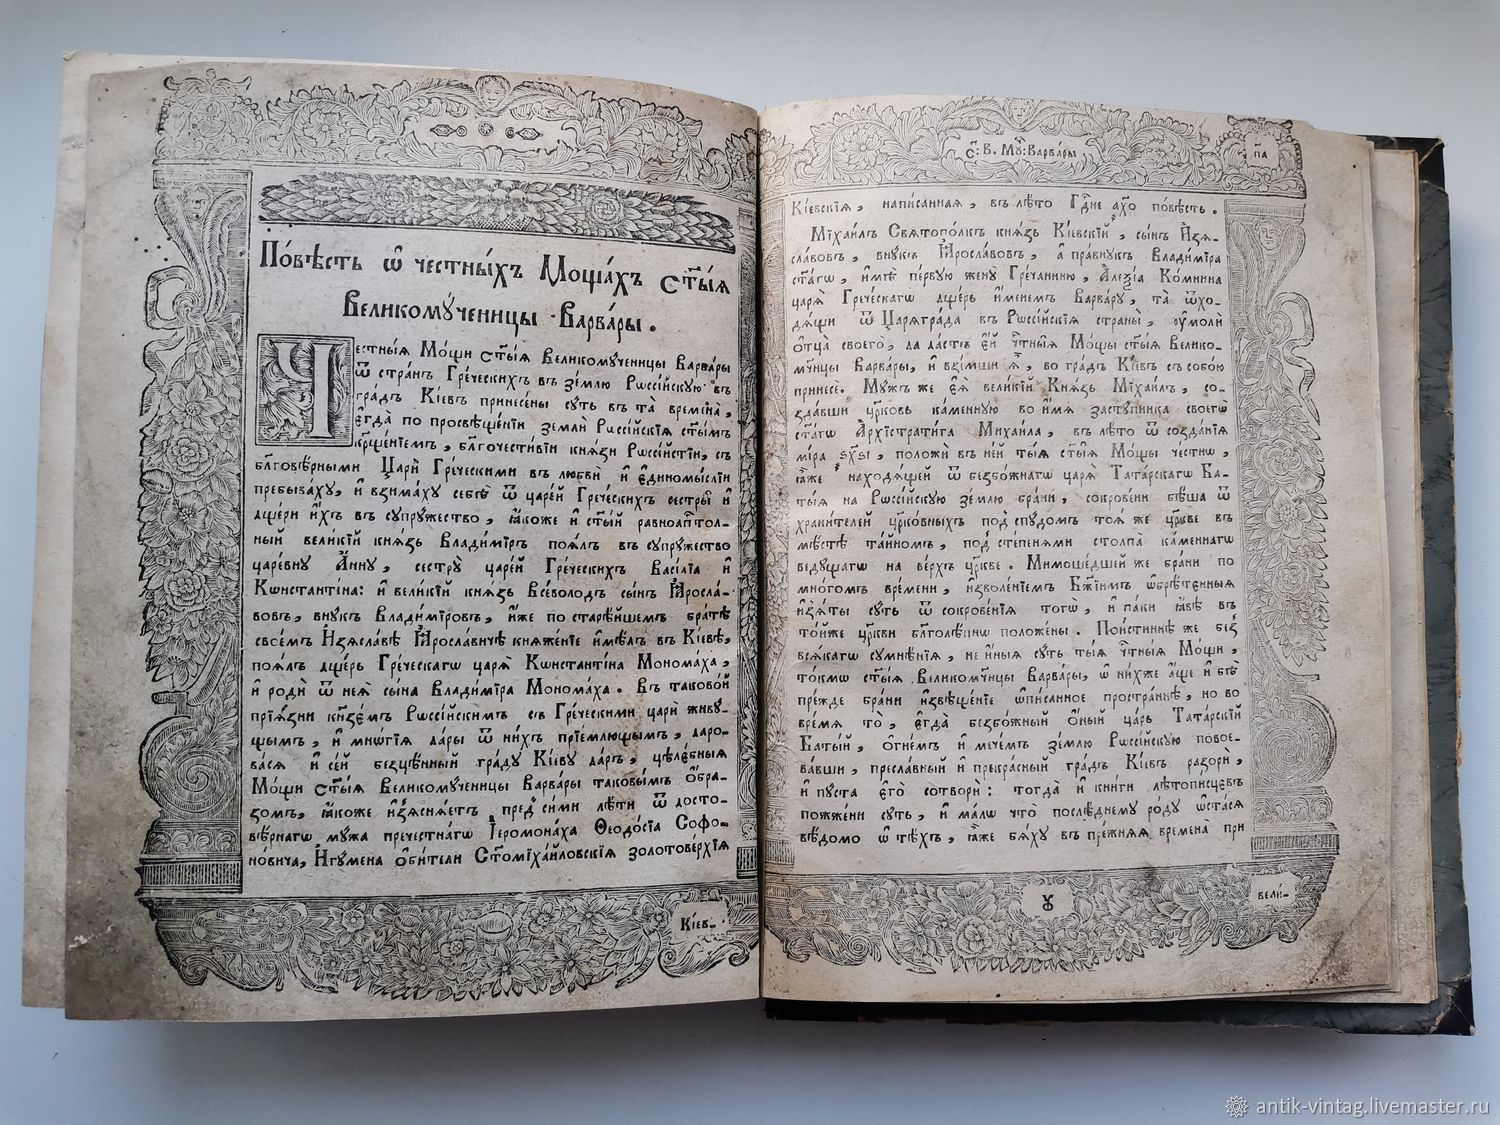 По́вѣсть ѿ честны́хъ Моща́хъ ст҃ы́ѧ
Великомꙋ́ченицы Варва́ры.
Честны́ѧ Мо́щи ст҃ы́ѧ Великомꙋ́ченицы Варва́ры
ѿ стра́нъ Гре́ческихъ въ зе́млю Рѡссі́йскую въ
гра́дъ Кі́евъ принесе́ны сꙋть въ та̀ времена̀,
єгда̀ по просвѣще́нїи землѝ Рѡссі́йскїѧ ст҃ы́мъ
кр҃ще́нїемъ, бл҃гочести́вїи кнѧ́зи Рѡссі́йстїи, съ
бл҃говѣ́рными Царѝ Гре́ческими въ любвѝ и҆ є҆диномы́слїи
пребыва́хꙋ, и҆ взима́хꙋ себѣ̀ ѿ царе́й Гре́ческихъ сестры̀ и҆
дще́ри и҆́хъ въ сꙋпрꙋ́жество, ꙗ҆́коже и҆ ст҃ы́й равноап҃тол-
ный вели́кїй кнѧ́зь Влади́міръ поѧ́лъ въ сꙋпрꙋ́жество
царе́внꙋ А҆́ннꙋ, сестрꙋ̀ царе́й Гре́ческихъ Васі́лїа и҆
Кѡнстанті́на: и҆ вели́кїй кнѧ́зь Все́володъ сы́нъ Ꙗ҆росла́-
вовъ, внꙋ́къ Влади́міровъ, и҆́же по старѣ́йшемъ бра́тѣ
свое́мъ И҆зѧсла́вѣ Ꙗ҆росла́вичѣ княже́нїе и҆мѣ́лъ въ Кі́евѣ,
поѧ́лъ дще́рь Гре́ческагѡ царѧ̀ Кѡнстанті́на Монома́ха,
и҆ родѝ ѿ неѧ̀ сы́на Влади́міра Монома́ха. Въ таково́й
прїѧ́зни кнѧзе́мъ Рѡссі́йскимъ съ Гре́ческими царѝ живꙋ́-
щымъ, и҆ мнѡ́гїѧ да́ры ѿ ни́хъ прїе́млющымъ, даро-
ва́сѧ и҆ се́й безцѣ́нный гра́дꙋ Кі́евꙋ да́ръ, цѣле́бныѧ
Мо́щи ст҃ы́ѧ Великомꙋ́ченицы Варва́ры таковы́мъ о҆́бра-
зомъ, ꙗ҆́коже и҆з̾ѧснѧ́етъ пред̾ си́ми лѣ́ты ѿ досто-
вѣ́рнагѡ мꙋ́жа пречестна́гѡ І҆еромона́ха Ѳеодо́сїа Софо-
но́вича, И҆гꙋ́мена ѻ҆би́тели Ст҃омїха́йловскїѧ золотове́рхїѧ
Кі́ев-
С҃: В. Мꙋ҃: Варва́ры
п҃а
Кі́евскїѧ, напи́саннаѧ, въ лѣ́то Гд҇не а҆хо по́вѣсть.
Міхаи́лъ Свѧтопо́лкъ кнѧ́зь Кі́евскїй, сы́нъ И҆зѧ-
сла́вовъ, внꙋ́къ Ꙗ҆росла́вовъ, а҆ пра́внꙋкъ Влади́міра
ст҃а́гѡ, и҆мѣ̀ пе́рвꙋю женꙋ̀ Греча́ниню, А҆леѯі́а Комни́на
царѧ̀ Гре́ческагѡ дще́рь и҆́менемъ Варва́рꙋ, та̀ ѿхо-
дѧ́щи ѿ Царѧгра́да въ Рѡссі́йскїѧ страны̀, ᲂу҆молѝ
ѻ҆тца̀ своегѡ̀, да да́стъ є҆́й чт҃ны̑ѧ Мо́щы ст҃ы́ѧ Велико-
мч҃нцы Варва́ры, и҆ взе́мши ѧ҆̀, во гра́дъ Кі́евъ съ собо́ю
принесѐ. Мꙋ́жъ же є҆ѧ̀ вели́кїй Кнѧ́зь Міхаи́лъ, со-
зда́вши цр҃ковь ка́меннꙋю во и҆́мѧ застꙋ́пника своегѡ̀
ст҃а́гѡ А҆рхїстрати́га Михаи́ла, въ лѣ́то ѿ созда́нїѧ
мі́ра ѕх҃ѕі, положѝ въ не́й ты́ѧ ст҃ы́ѧ Мо́щы че́стнѡ,
ꙗ҆̀же находѧ́щей ѿ безбо́жнагѡ царѧ̀ Тата́рскагѡ Ба-
ты́ѧ на Рѡссі́йскꙋю зе́млю бра́ни, сокрове́ни бѣ́ша ѿ
храни́телей цр҃ко́вныхъ под̾ спꙋ́домъ тоѧ́ же цр҃кве въ
мѣ́стѣ та́йномъ, под̾ степе́нями столпа̀ ка́меннагѡ
ведꙋ́щагѡ на ве́рхъ цр҃кве. Мимоше́дшей же бра́ни по
мно́гомъ вре́мени, и҆зволе́нїемъ Бж҃їимъ ѡ҆брѣ́тенныѧ
и҆з̾ѧ́ты сꙋ́ть ѿ сокрове́нїѧ тогѡ̀, и҆ па́ки ꙗ҆́вѣ въ
то́йже цр҃кви бл҃голѣ́пнѡ поло́жены. Пои́стиннѣ же без̾
всѧ́кагѡ сꙋмнѣ́нїѧ, не и҆ны́ѧ сꙋ́ть ты́ѧ чт҃ны́ѧ Мо́щи,
то́кмѡ ст҃ы́ѧ Великомч҃нцы Варва́ры, ѡ҆ ни́хже а҆́ще и҆ бѣ̀
пре́жде бра́ни и҆звѣще́нїе ѡ҆пи́санное простра́ннѣ, но во
вре́мѧ то̀, є҆гда̀ безбо́жный ѻ҆́ный ца́рь Тата́рскїй
Баты́й, ѻ҆гне́мъ и҆ мече́мъ зе́млю Рѡссі́йскꙋю повое-
ва́вши, пресла́вный и҆ прекра́сный гра́дъ Кі́евъ разорѝ,
и҆ пꙋ́ста є҆го̀ сотворѝ: тогда̀ и҆ кни́ги лѣтопи́сцевъ
пожже́ни сꙋ́ть, и҆ ма́лѡ что̀ послѣ́днемꙋ ро́дꙋ ѡ҆ста́сѧ
вѣ́домо ѡ҆ тѣ́хъ, ꙗ҆̀же бѧ́хꙋ въ пре́жнѧѧ времена̀ при
ꙋ
вели-
antik-vintag.livemaster.ru